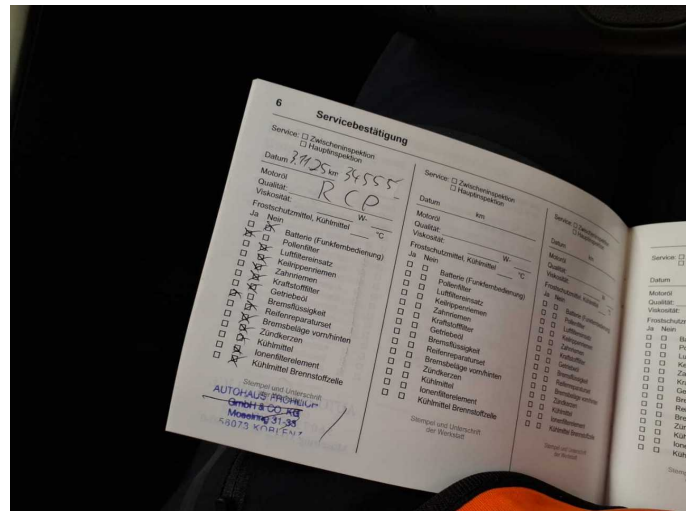 6
Servicebestätigung
Service: ☐ Zwischeninspektion
☐ Hauptinspektion
Datum 3.1125 km 34555
Motoröl
Qualität: RCP
Viskosität: W- °C
Frostschutzmittel, Kühlmittel
Ja Nein
Batterie (Funkfernbedienung)
Pollenfilter
Luftfiltereinsatz
Keilrippenriemen
Zahnriemen
Kraftstofffilter
Getriebeöl
Bremsflüssigkeit
Reifenreparaturset
Bremsbeläge vorn/hinten
Zündkerzen
Kühlmittel
Ionenfilterelement
Kühlmittel Brennstoffzelle
Stempel und Unterschrift
AUTOHAUS FRÖHLICH
GmbH & CO. KG
Moselring 31-33
56073 KOBLENZ
Service: ☐ Zwischeninspektion
☐ Hauptinspektion
Datum km
Motoröl
Qualität:
Viskosität: W- °C
Frostschutzmittel, Kühlmittel
Ja Nein
Batterie (Funkfernbedienung)
Pollenfilter
Luftfiltereinsatz
Keilrippenriemen
Zahnriemen
Kraftstofffilter
Getriebeöl
Bremsflüssigkeit
Reifenreparaturset
Bremsbeläge vorn/hinten
Zündkerzen
Kühlmittel
Ionenfilterelement
Kühlmittel Brennstoffzelle
Stempel und Unterschrift
der Werkstatt
Service: ☐ Zwischeninspektion
☐ Hauptinspektion
Datum km
Motoröl
Qualität:
Viskosität: W- °C
Frostschutzmittel, Kühlmittel
Ja Nein
Batterie (Funkfernbedienung)
Pollenfilter
Luftfiltereinsatz
Keilrippenriemen
Zahnriemen
Kraftstofffilter
Getriebeöl
Bremsflüssigkeit
Reifenreparaturset
Bremsbeläge vorn/hinten
Zündkerzen
Kühlmittel
Ionenfilterelement
Kühlmittel Brennstoffzelle
Stempel und Unterschrift
der Werkstatt
Service:
Datum
Motoröl
Qualität:
Viskosität:
Ja Nein